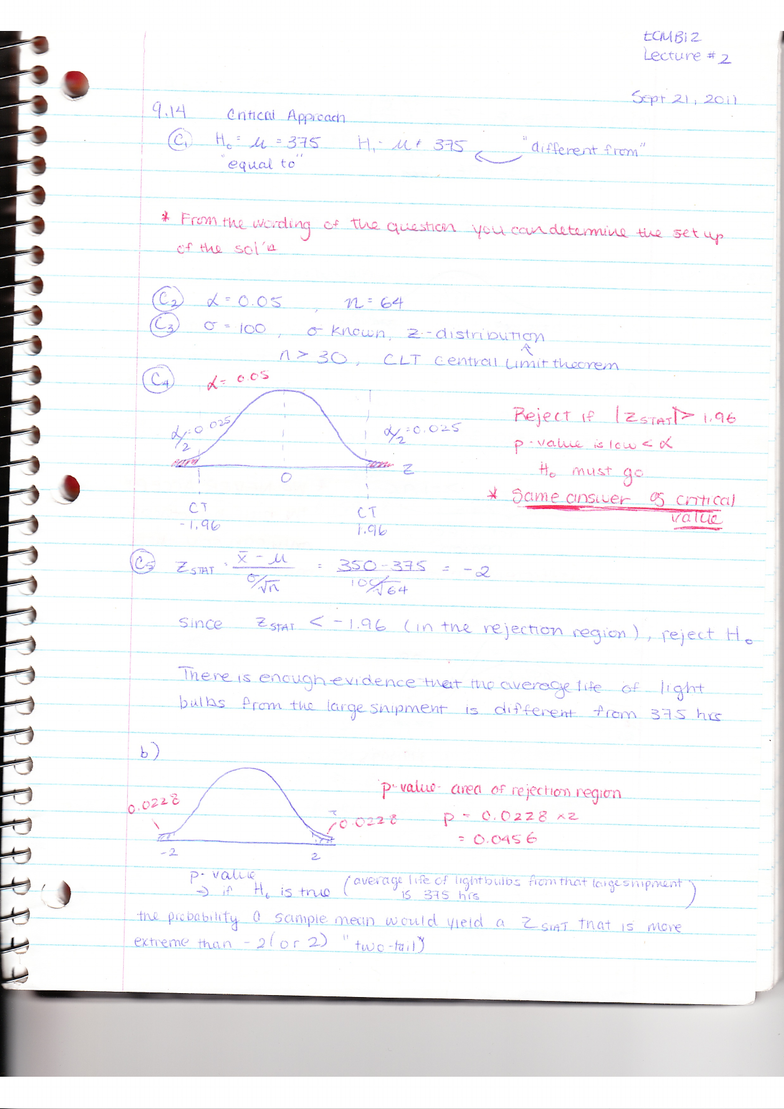 ECMB12
Lecture #2
Sept 21, 2011
9.14 Critical Approach
C1 H₀ = μ = 375 H₁ μ ≠ 375 "different from"
"equal to"
* From the wording of the question you can determine the set up
of the sol'n
C2 α = 0.05 , n = 64
C3 σ = 100 , σ known, z-distribution
n > 30, CLT Central Limit theorem
C4 α = 0.05
α/2 = 0.025 α/2 = 0.025
0 Z
CT CT
-1.96 1.96
Reject if |Z STAT| > 1.96
p-value is low < α
H₀ must go
* Same answer as critical
value
C5 Z STAT = (x̄ - μ)/(σ/√n) = (350-375)/(100/√64) = -2
Since Z STAT < -1.96 (in the rejection region), reject H₀
There is enough evidence that the average life of light
bulbs from the large shipment is different from 375 hrs
b)
0.0228 0.0228
-2 2
p-value - area of rejection region
p = 0.0228 x2
= 0.0456
p-value
→ if H₀ is true (average life of lightbulbs from that large shipment
is 375 hrs)
the probability a sample mean would yield a Z STAT that is more
extreme than -2 (or 2) "two-tail"